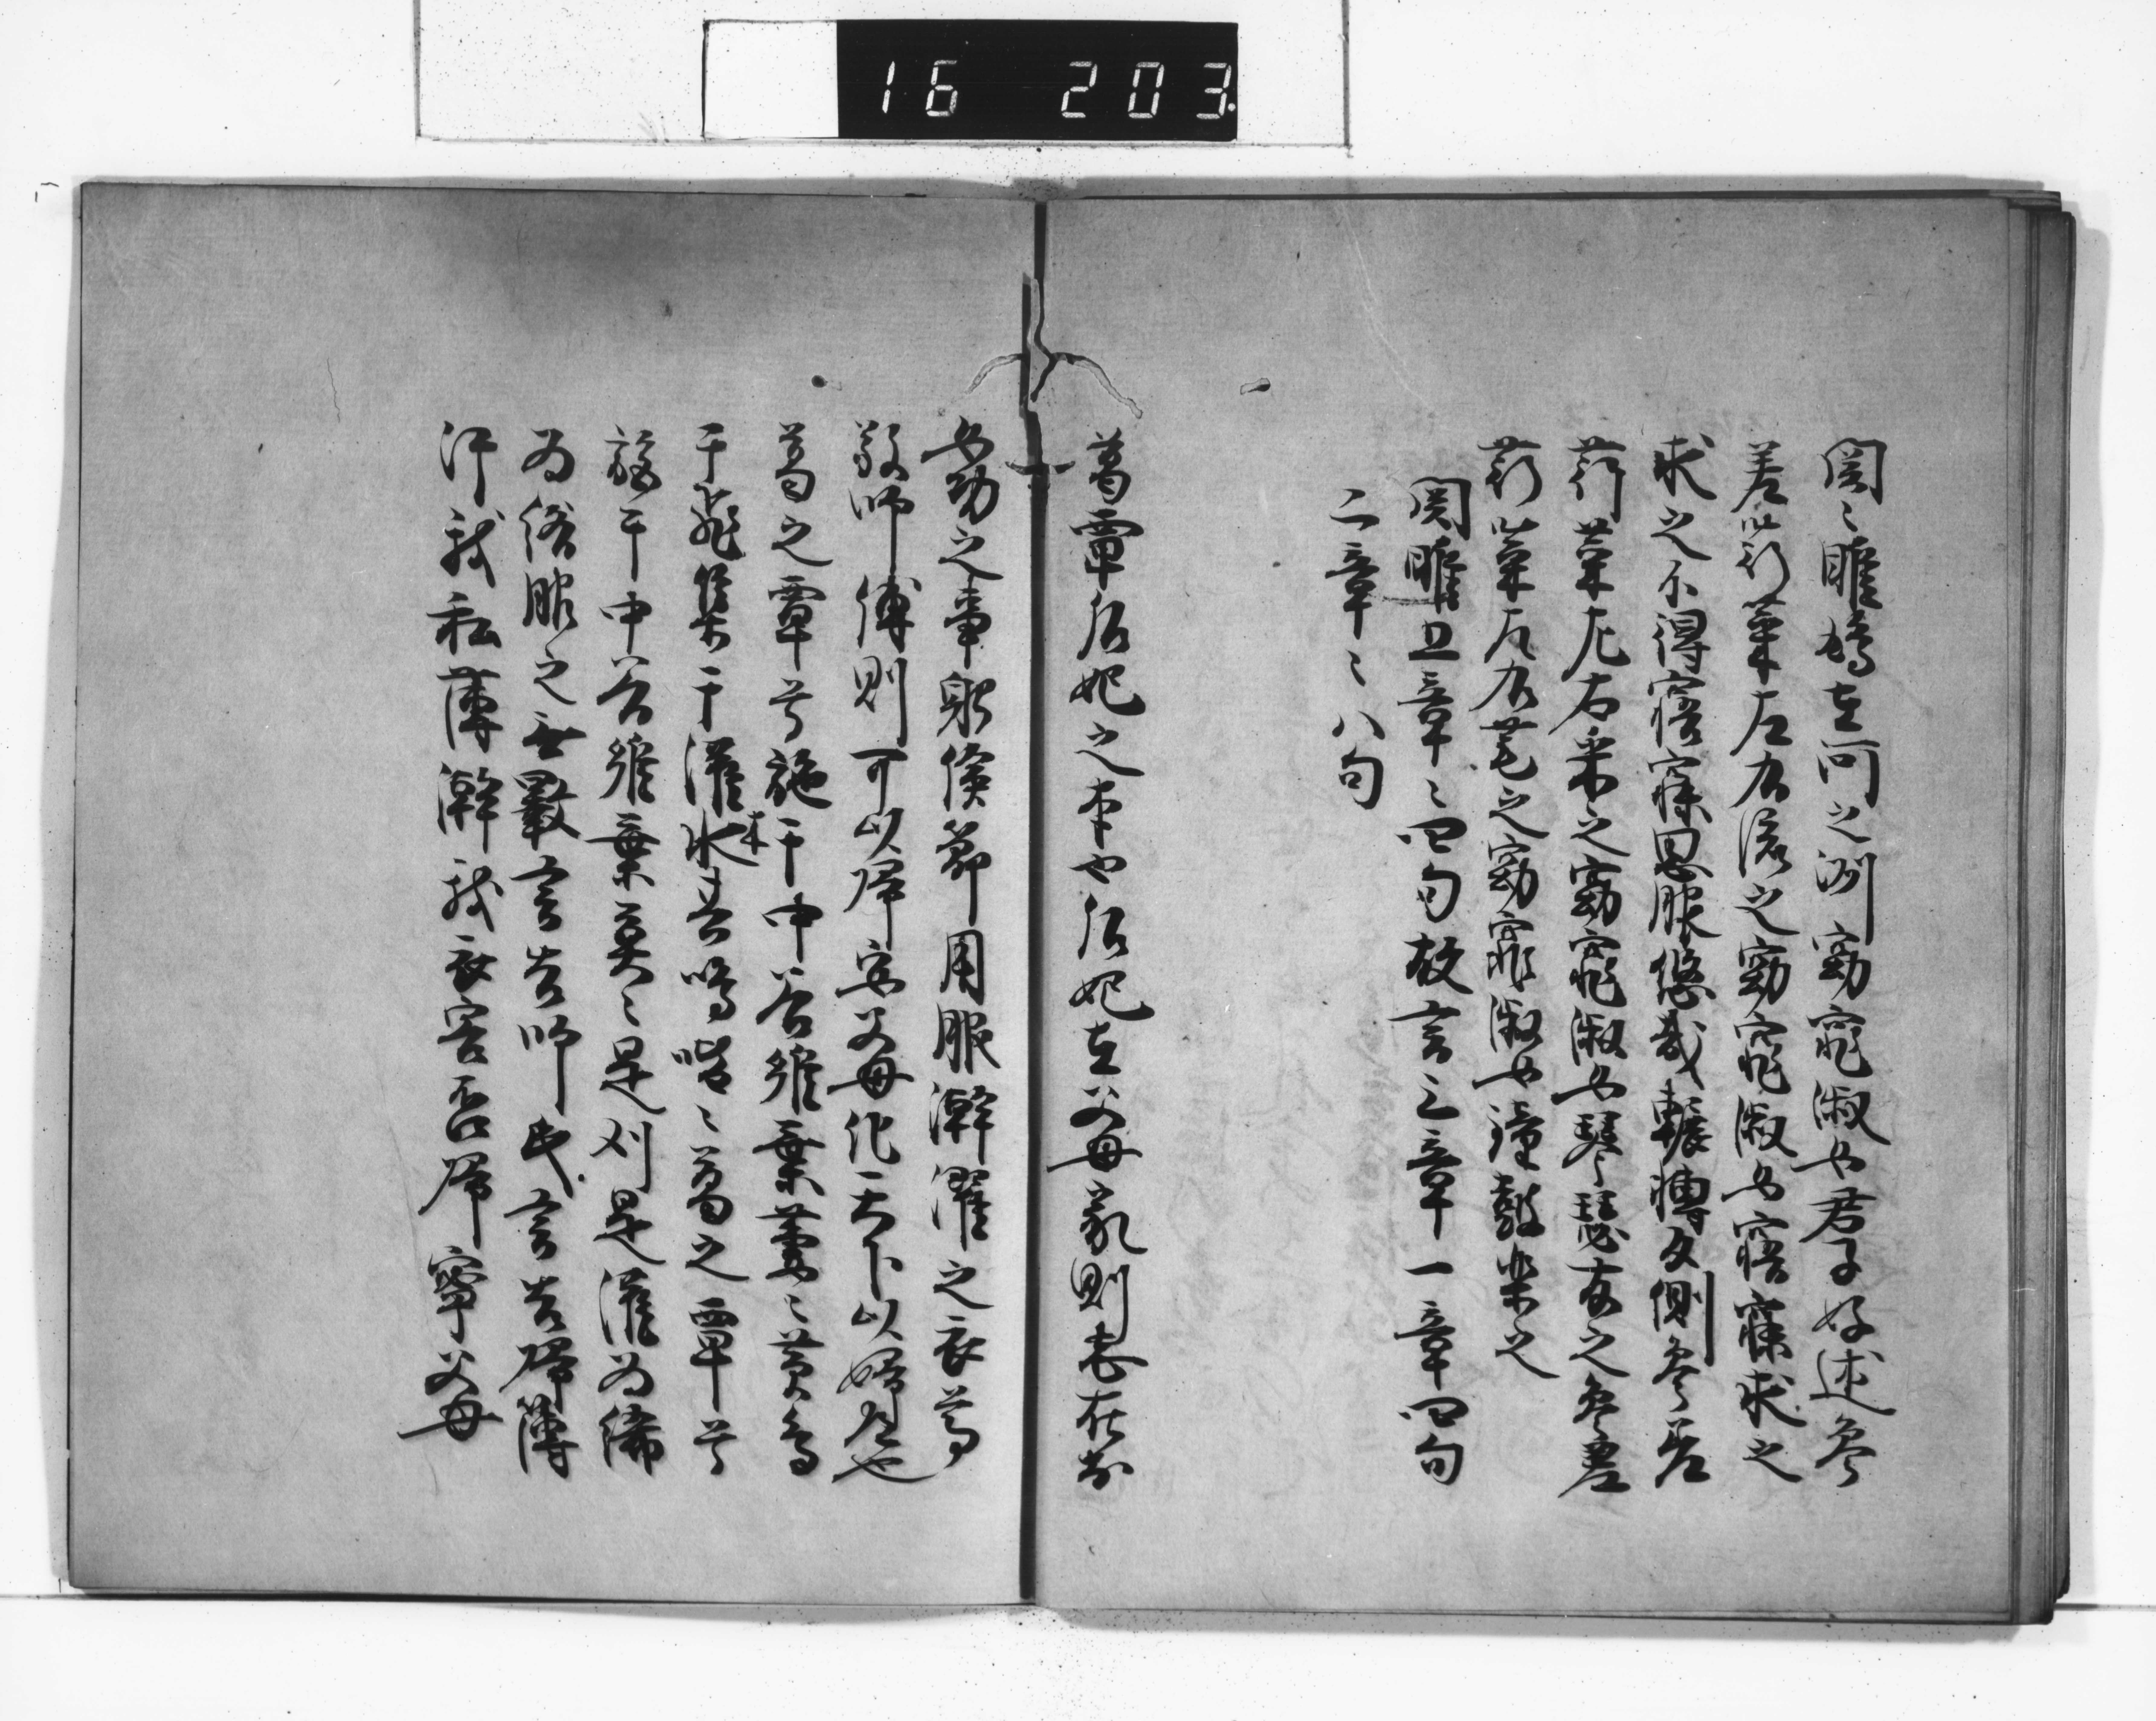 16 203
関〻雎鳩在河之洲窈窕淑女君子好逑参
差荇菜左右流之窈窕淑女寤寐求之
求之不得寤寐思服悠哉輾轉反側参差
荇菜左右采之窈窕淑女琴瑟友之参差
荇菜左右芼之窈窕淑女鍾鼓楽之
関雎五章〻四句故言三章一章四句
二章〻八句
葛覃后妃之本也后妃在父母家則志在於
女功之事躬倹節用服澣濯之衣尊
敬師傅則可以帰安父母化天下以婦道也
葛之覃兮施于中谷維葉萋〻黄鳥
于飛集于灌木其鳴喈〻葛之覃兮
施于中谷維葉莫〻是刈是濩為絺
為綌服之無斁言告師氏言告帰薄
汙我私薄澣我衣害否帰寧父母